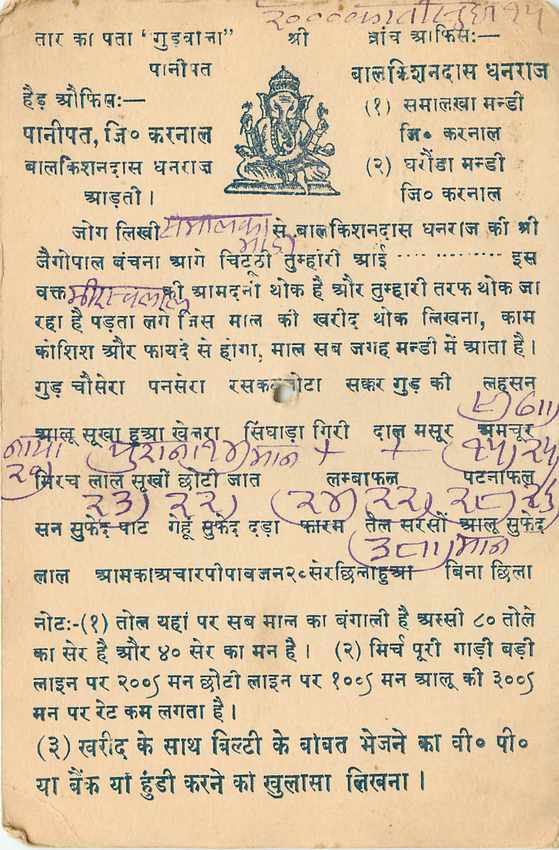 तार का पता "गुड़वाला" श्री ब्रांच आफिसः—
पानीपत बालकिशनदास धनराज
हैड़ औफिसः— (१) समालखा मन्डी
पानीपत, जि० करनाल जि० करनाल
बालकिशनदास धनराज (२) घरौंडा मन्डी
आड़ती। जि० करनाल
जोग लिखी समालका से बालकिशनदास धनराज की श्री
जैगोपाल बंचना आगे चिट्ठी तुम्हारी आई ............ इस
वक्त की आमदनी थोक है और तुम्हारी तरफ थोक जा
रहा है पड़ता लग जिस माल की खरीद थोक लिखना, काम
कोशिश और फायदे से होगा, माल सब जगह मन्डी में आता है।
गुड़ चौसेरा पनसेरा रसकट सक्कर गुड़ की लहसन
८) ७॥)
आलू सूखा हुआ खेलरा सिंघाड़ा गिरी दाल मसूर अमचूर
नाया २१) पुराना १४) मान + + १५) २५)
मिरच लाल सुर्खी छोटी जात लम्बाफल पटनाफल
२३) २२) २४) २२) २८) २६)
सन सुफेद पाट गेहूँ सुफेद दड़ा फारम तेल सरसों आलू सुफेद
३८॥) मान
लाल आमका अचार पीपा बजन २८ सेर छिला हुआ बिना छिला
नोटः-(१) तोल यहां पर सब माल का बंगाली है अस्सी ८० तोले
का सेर है और ४० सेर का मन है। (२) मिर्च पूरी गाड़ी बड़ी
लाइन पर २००ऽ मन छोटी लाइन पर १०८ऽ मन आलू की ३००ऽ
मन पर रेट कम लगता है।
(३) खरीद के साथ बिल्टी के बाबत भेजने का वी० पी०
या बैंक या हुंडी करने का खुलासा लिखना।